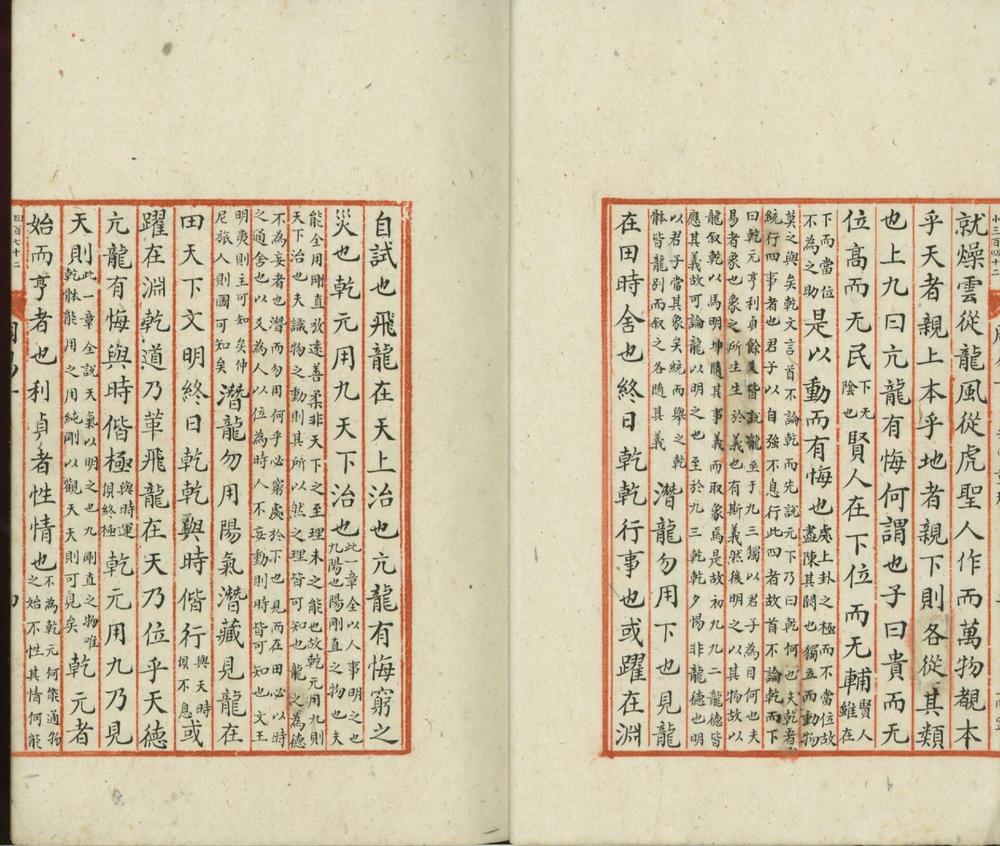 小三百四十二
就燥雲從龍風從虎聖人作而萬物覩本
乎天者親上本乎地者親下則各從其類
也上九曰亢龍有悔何謂也子曰貴而无
位高而无民下无陰也賢人在下位而无輔賢人雖在
下而當位不為之助是以動而有悔也處上卦之極而不當位故盡陳其闕也獨立而動物
莫之與矣乾文言首不論乾而先説元下乃曰乾何也夫乾者
統行四事者也君子以自強不息行此四者故首不論乾而下
曰乾元亨利貞餘爻皆説龍至于九三獨以君子為目何也夫
易者象也象之所生生於義也有斯義然後明之以其物故以
龍叙乾以馬明坤隨其事義而取象焉是故初九九二龍德皆
應其義故可論龍以明之也至於九三乾乾夕惕非龍德也明
以君子當其象矣統而舉之乾體皆龍別而叙之各隨其義潛龍勿用下也見龍
在田時舍也終日乾乾行事也或躍在淵
自試也飛龍在天上治也亢龍有悔窮之
災也乾元用九天下治也此一章全以人事明之也九陽也陽剛直之物也夫
能全用剛直放遠善柔非天下之至理未之能也故乾元用九則
天下治也夫識物之動則其所以然之理皆可知也龍之為德
不為妄者也潛而勿用何乎必窮處於下也見而在田必以時
之通舍也以爻為人以位為時人不妄動則時皆可知也文王
明夷則主可知矣仲尼旅人則國可知矣潛龍勿用陽氣潛藏見龍在
田天下文明終日乾乾與時偕行與天時俱不息或
躍在淵乾道乃革飛龍在天乃位乎天德
亢龍有悔與時偕極與時運俱終極乾元用九乃見
天則此一章全説天氣以明之也九剛直之物唯乾體能用之用純剛以觀天天則可見矣乾元者
始而亨者也利貞者性情也不為乾元何能通物之始不性其情何能
四百七十二